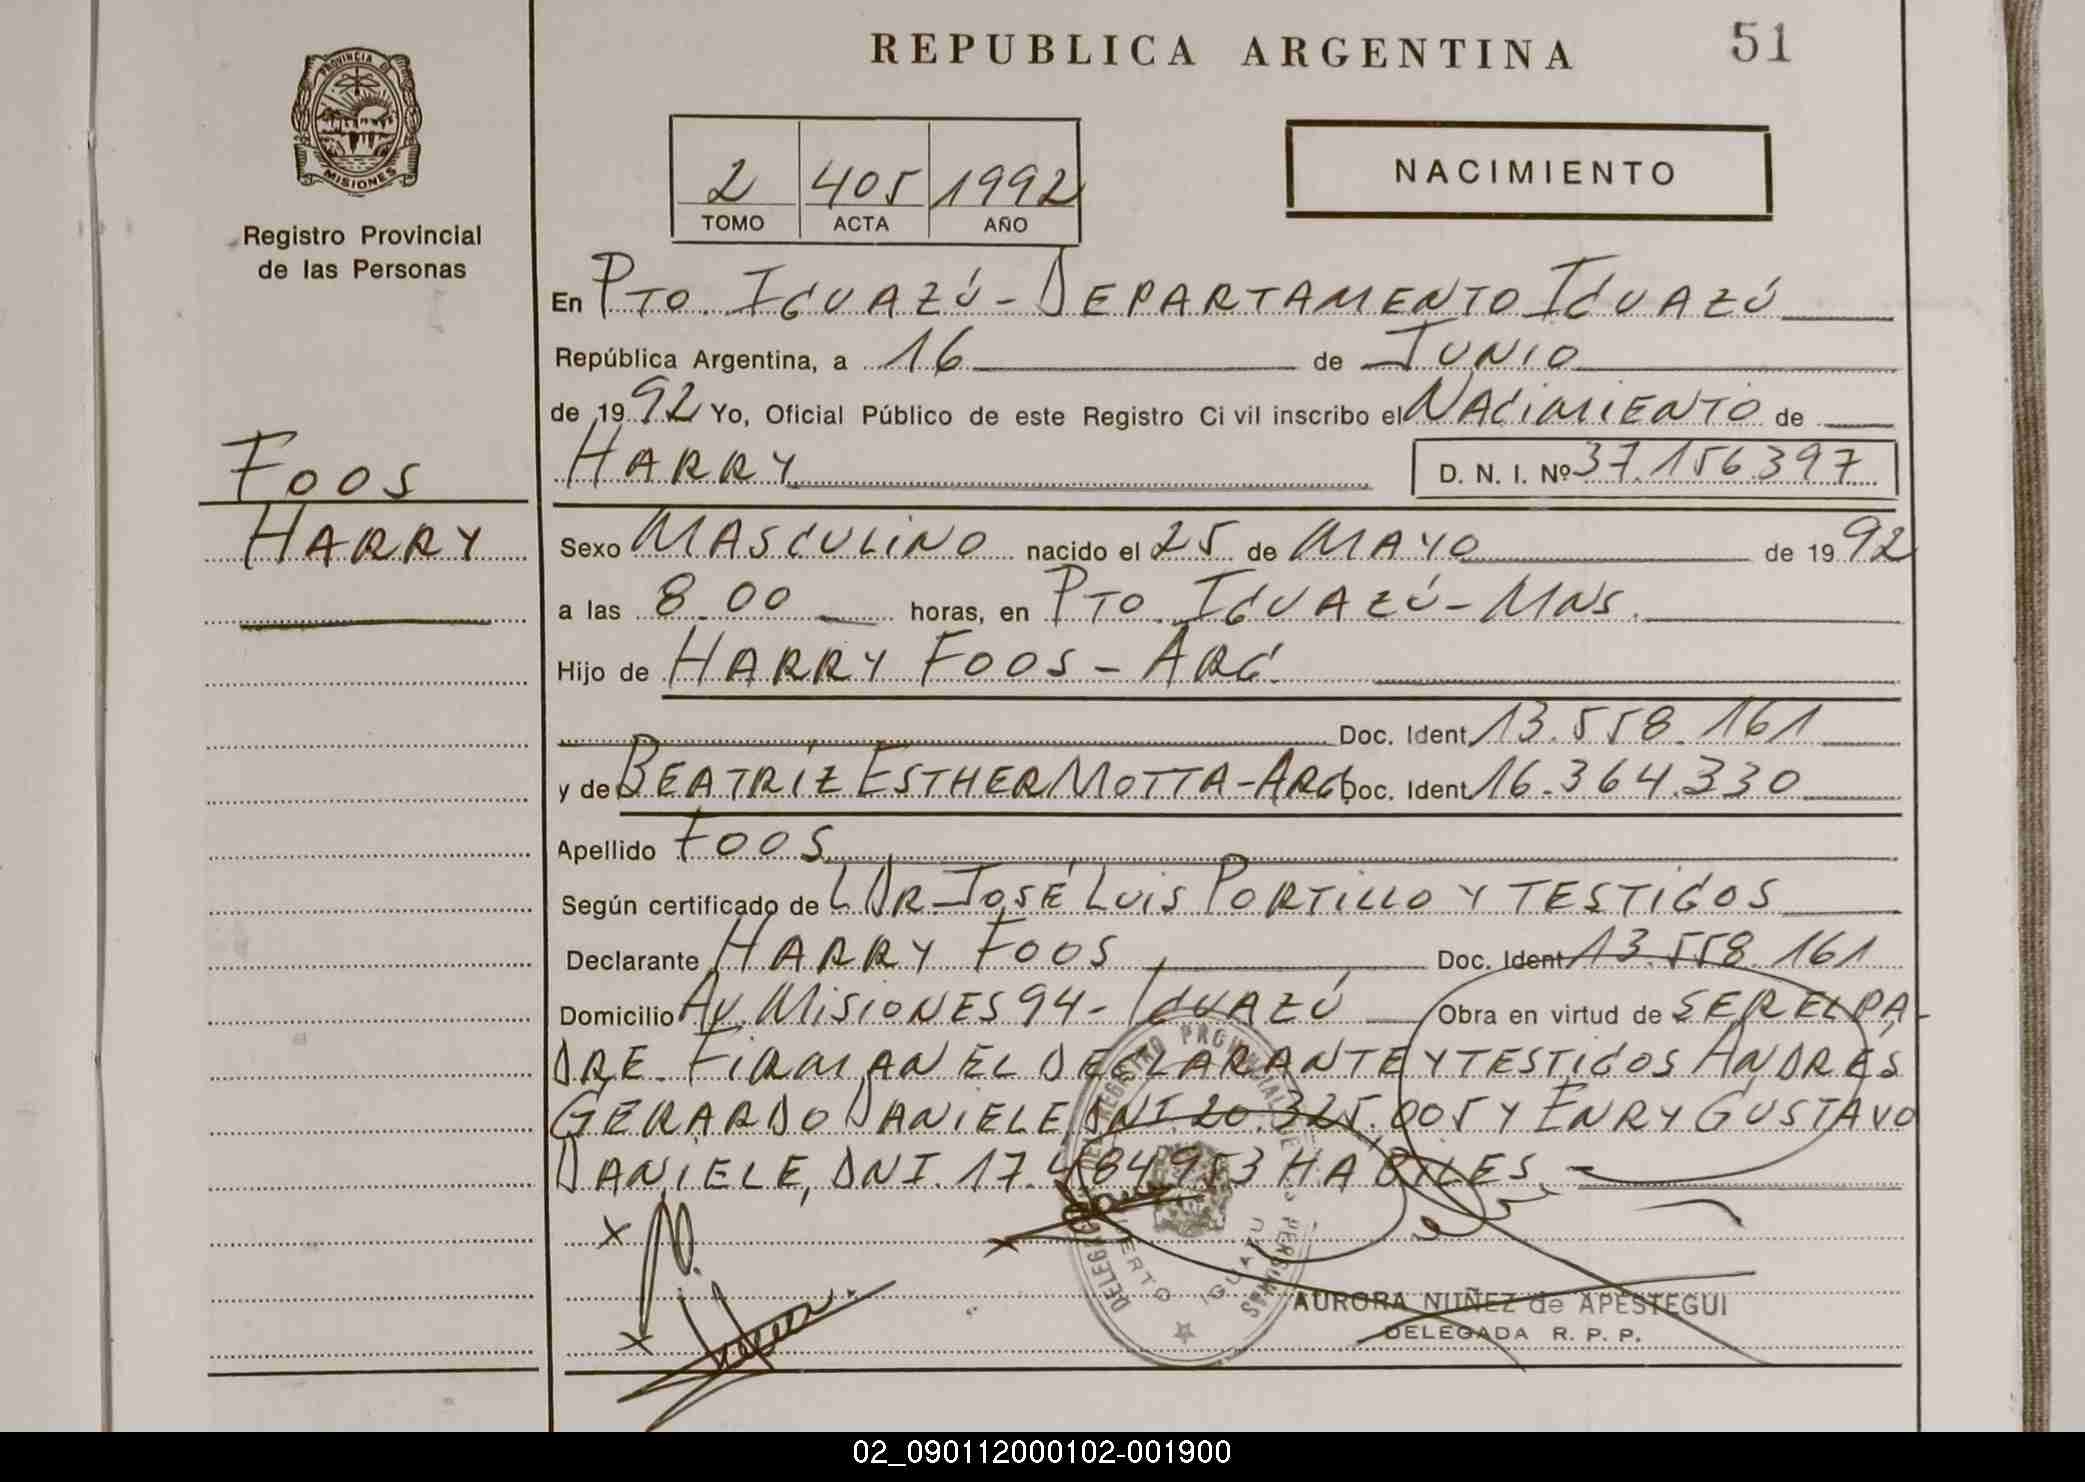 REPUBLICA ARGENTINA
51
PROVINCIA DE
MISIONES
Registro Provincial
de las Personas
2 405 1992
TOMO ACTA AÑO
NACIMIENTO
En PTO. IGUAZÚ - DEPARTAMENTO IGUAZÚ
República Argentina, a 16 de JUNIO
de 1992 Yo, Oficial Público de este Registro Civil inscribo el NACIMIENTO de
HARRY D. N. I. Nº 37.156.397
FOOS
HARRY
Sexo MASCULINO nacido el 25 de MAYO de 1992
a las 8.00 horas, en PTO. IGUAZÚ - MNS.
Hijo de HARRY FOOS - ARG.
Doc. Ident 13.558.161
y de BEATRÍZ ESTHER MOTTA - ARG. Doc. Ident 16.364.330
Apellido FOOS
Según certificado de DR. JOSÉ LUIS PORTILLO Y TESTIGOS
Declarante HARRY FOOS Doc. Ident 13.558.161
Domicilio AV. MISIONES 94 - IGUAZÚ Obra en virtud de SER EL PA-
DRE. FIRMAN EL DECLARANTE Y TESTIGOS ANDRÉS
GERARDO DANIELE, DNI. 20.325.005 Y ENRY GUSTAVO
DANIELE, DNI. 17.484.953 HABILES. -
REGISTRO PROVINCIAL DE LAS PERSONAS
DELEGACION
PUERTO IGUAZU
AURORA NUÑEZ de APESTEGUI
DELEGADA R. P. P.
02_090112000102-001900